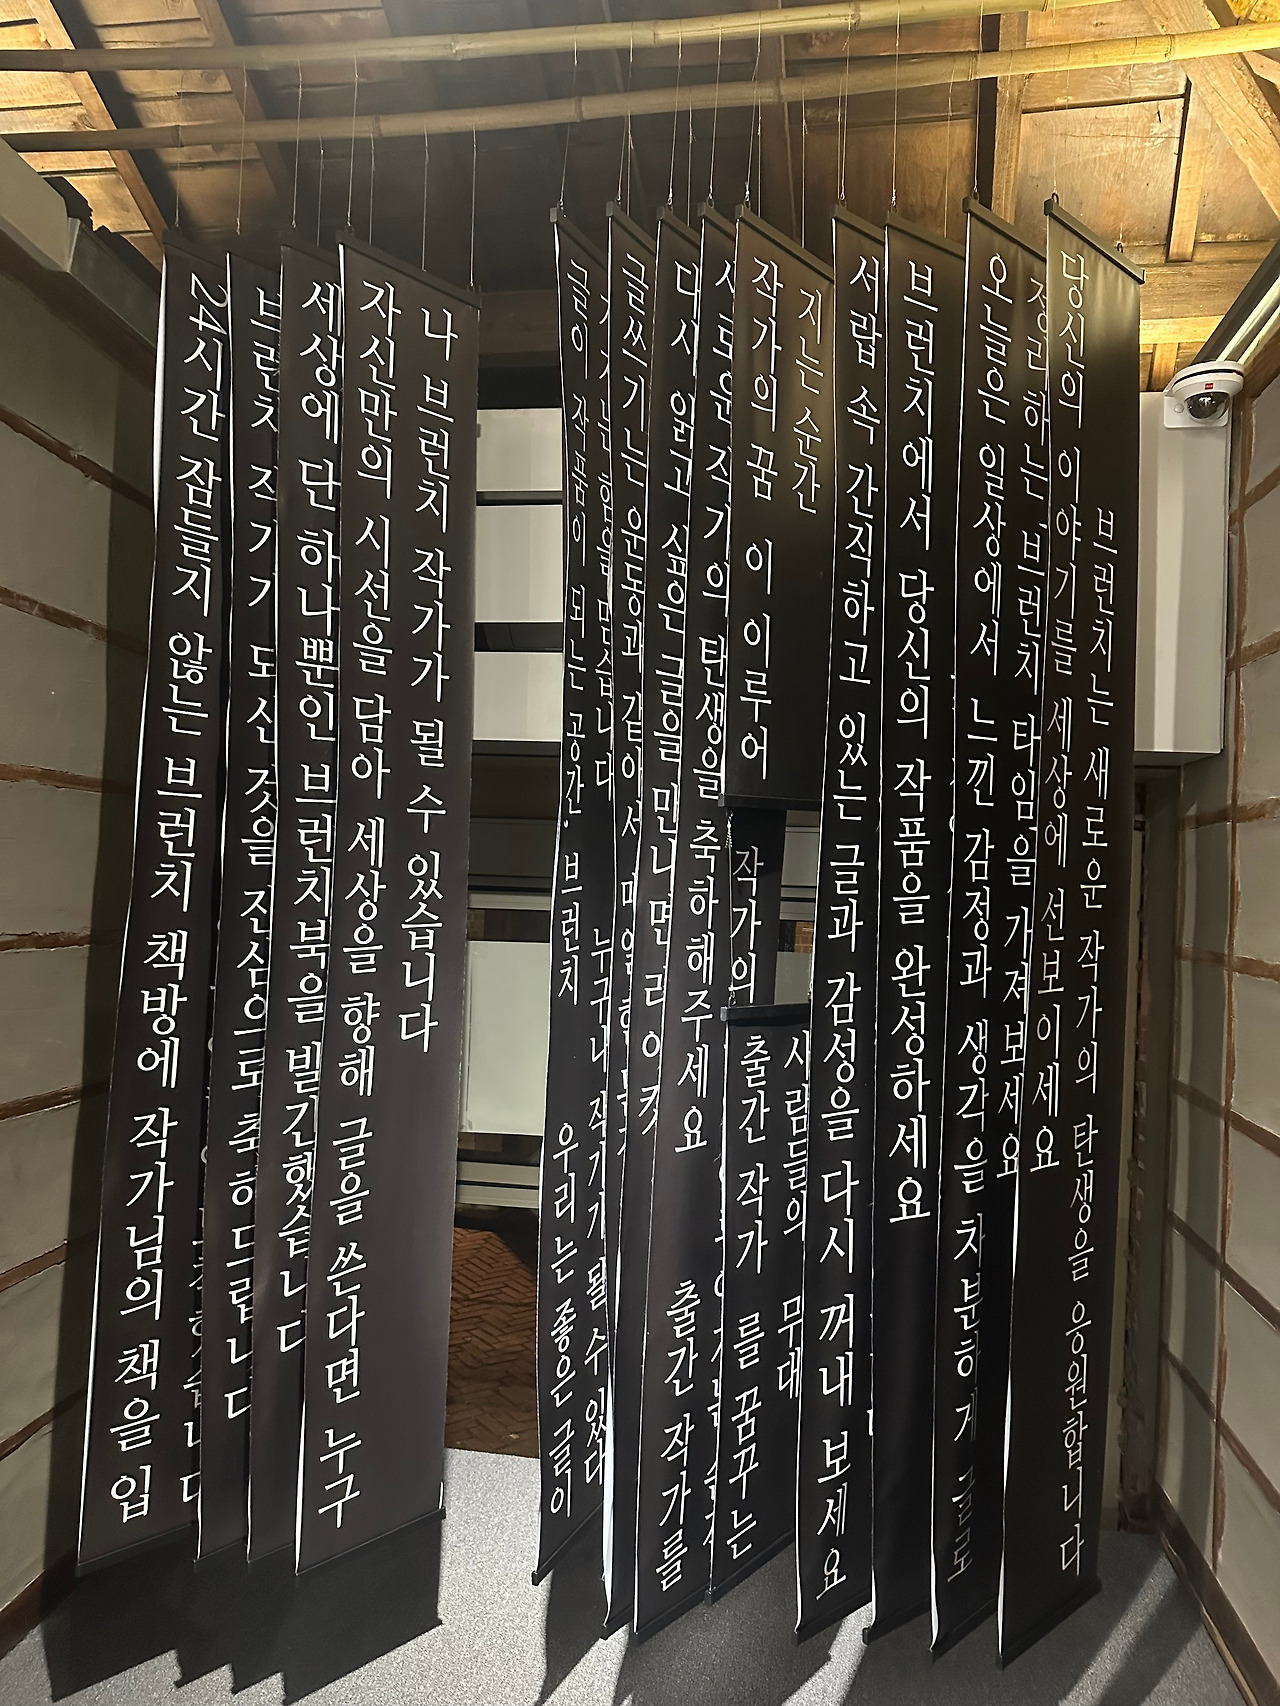 24시간 잠들지 않는 브런치 책방에 작가님의 책을 입
브런치 작가가 되신 것을 진심으로 축하드립니다
세상에 단 하나뿐인 브런치북을 발간했습니다
자신만의 시선을 담아 세상을 향해 글을 쓴다면 누구
나 브런치 작가가 될 수 있습니다
글이 작품이 되는 공간, 브런치
우리는 좋은 글이
힘을 믿습니다
누구나 작가가 될 수 있다
글쓰기는 운동과 같아서 매일
다시 읽고 싶은 글을 만나면 라이킷
새로운 작가의 탄생을 축하해주세요
출간 작가를
작가의 꿈 이 이루어
지는 순간
작가의
출간 작가 를 꿈꾸는
사람들의 무대
서랍 속 간직하고 있는 글과 감성을 다시 꺼내 보세요
브런치에서 당신의 작품을 완성하세요
오늘은 일상에서 느낀 감정과 생각을 차분하게 글로
정리하는 '브런치 타임'을 가져보세요
당신의 이야기를 세상에 선보이세요
브런치는 새로운 작가의 탄생을 응원합니다